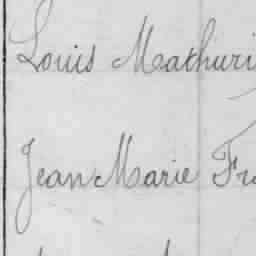 Louis Mathuri
Jean Marie Fra